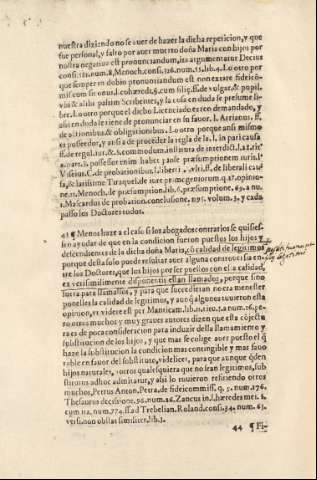 nuestra diziendo no se auer de hazer la dicha repeticion, y que
fue personal, y salto por auer muerto doña Maria con hijos por
nostra negatiua est pronunciandum, ita argumentatur Decius
consi. num. 8, Menoch. consi. num. 15. lib. 4. Lo otro por
que semper in dubio pronuntiandum est non extare fideicō
missum
in & alibi passim Scribentes, y la cosa en duda se presume li-
bre. Lo otro porque el dicho Licenciado es reo demandado, y
assi en duda se tiene de pronunciar en su fauor. l. Arrianus, ff.
de actionibus & obligationibus. Lo otro porque ansi mismo
es posseedor, y ansi a de proceder la regla de la l. in pari causa
ff. de regul. iur. & §. commodum. instituta de interdict.
possessor enim habet pro se præsumptionem iuris. l.
C. de probationibus. ff. de liberali cau-
sa, & latissime Tiraquel. de iure primogeniorum q. 17. opinio-
ne Menoch. de præsumption. lib. 6. præsumptione. 69. a nu.
1. Mascardus de probation. conclusione. volum. 3, y cada
passo los Doctores todos.
43 ¶ Menos haze al caso si los abogados contrarios se quisies-
sen ayudar de que en la condicion fueron puestos los hijos y
descendientes de la dicha doña Maria, cō calidad de legitimos
porque desta solo puede resultar auer alguna controuersia en-
tre los Doctores, que los hijos por ser puestos con esta calidad,
ex verisimili mente disponentis essan llamados, porque sino
fuera para llamallos, y para que succedieran no era menester
ponelles la calidad de legitimos, y aunque algunos tuuieron esta
opinion, vt videre est per Manticam, lib. 11. titu. num. 16. pe-
ro otros muchos y muy graues autores dizen que esta cōjectu
ra es de poca consideracion para induzir della llamamiento y
substitucion de los hijos, y que mas se colige auer puesto el q̄
haze la substitucion la condicion mas contingible y mas fauo
rable en fauor del substituto, videlicet, para que aunque queden
hijos naturales, y otros qualesquiera que no sean legitimos, sub
stitutus adhoc admitatur, y assi lo tuuieron refiriendo otros
muchos, Petrus Anton. Petra, de fideicommiss. q. 5. num. 176.
Thesaurus decisione. 96. num. 26. Zancus in l. hæredes mei. §.
cum ita, num. 774. ff. ad Trebelian. Roland. consi. 34. num. 63.
versi. non obstat similiter. lib. 1.
44 ¶ Fi-